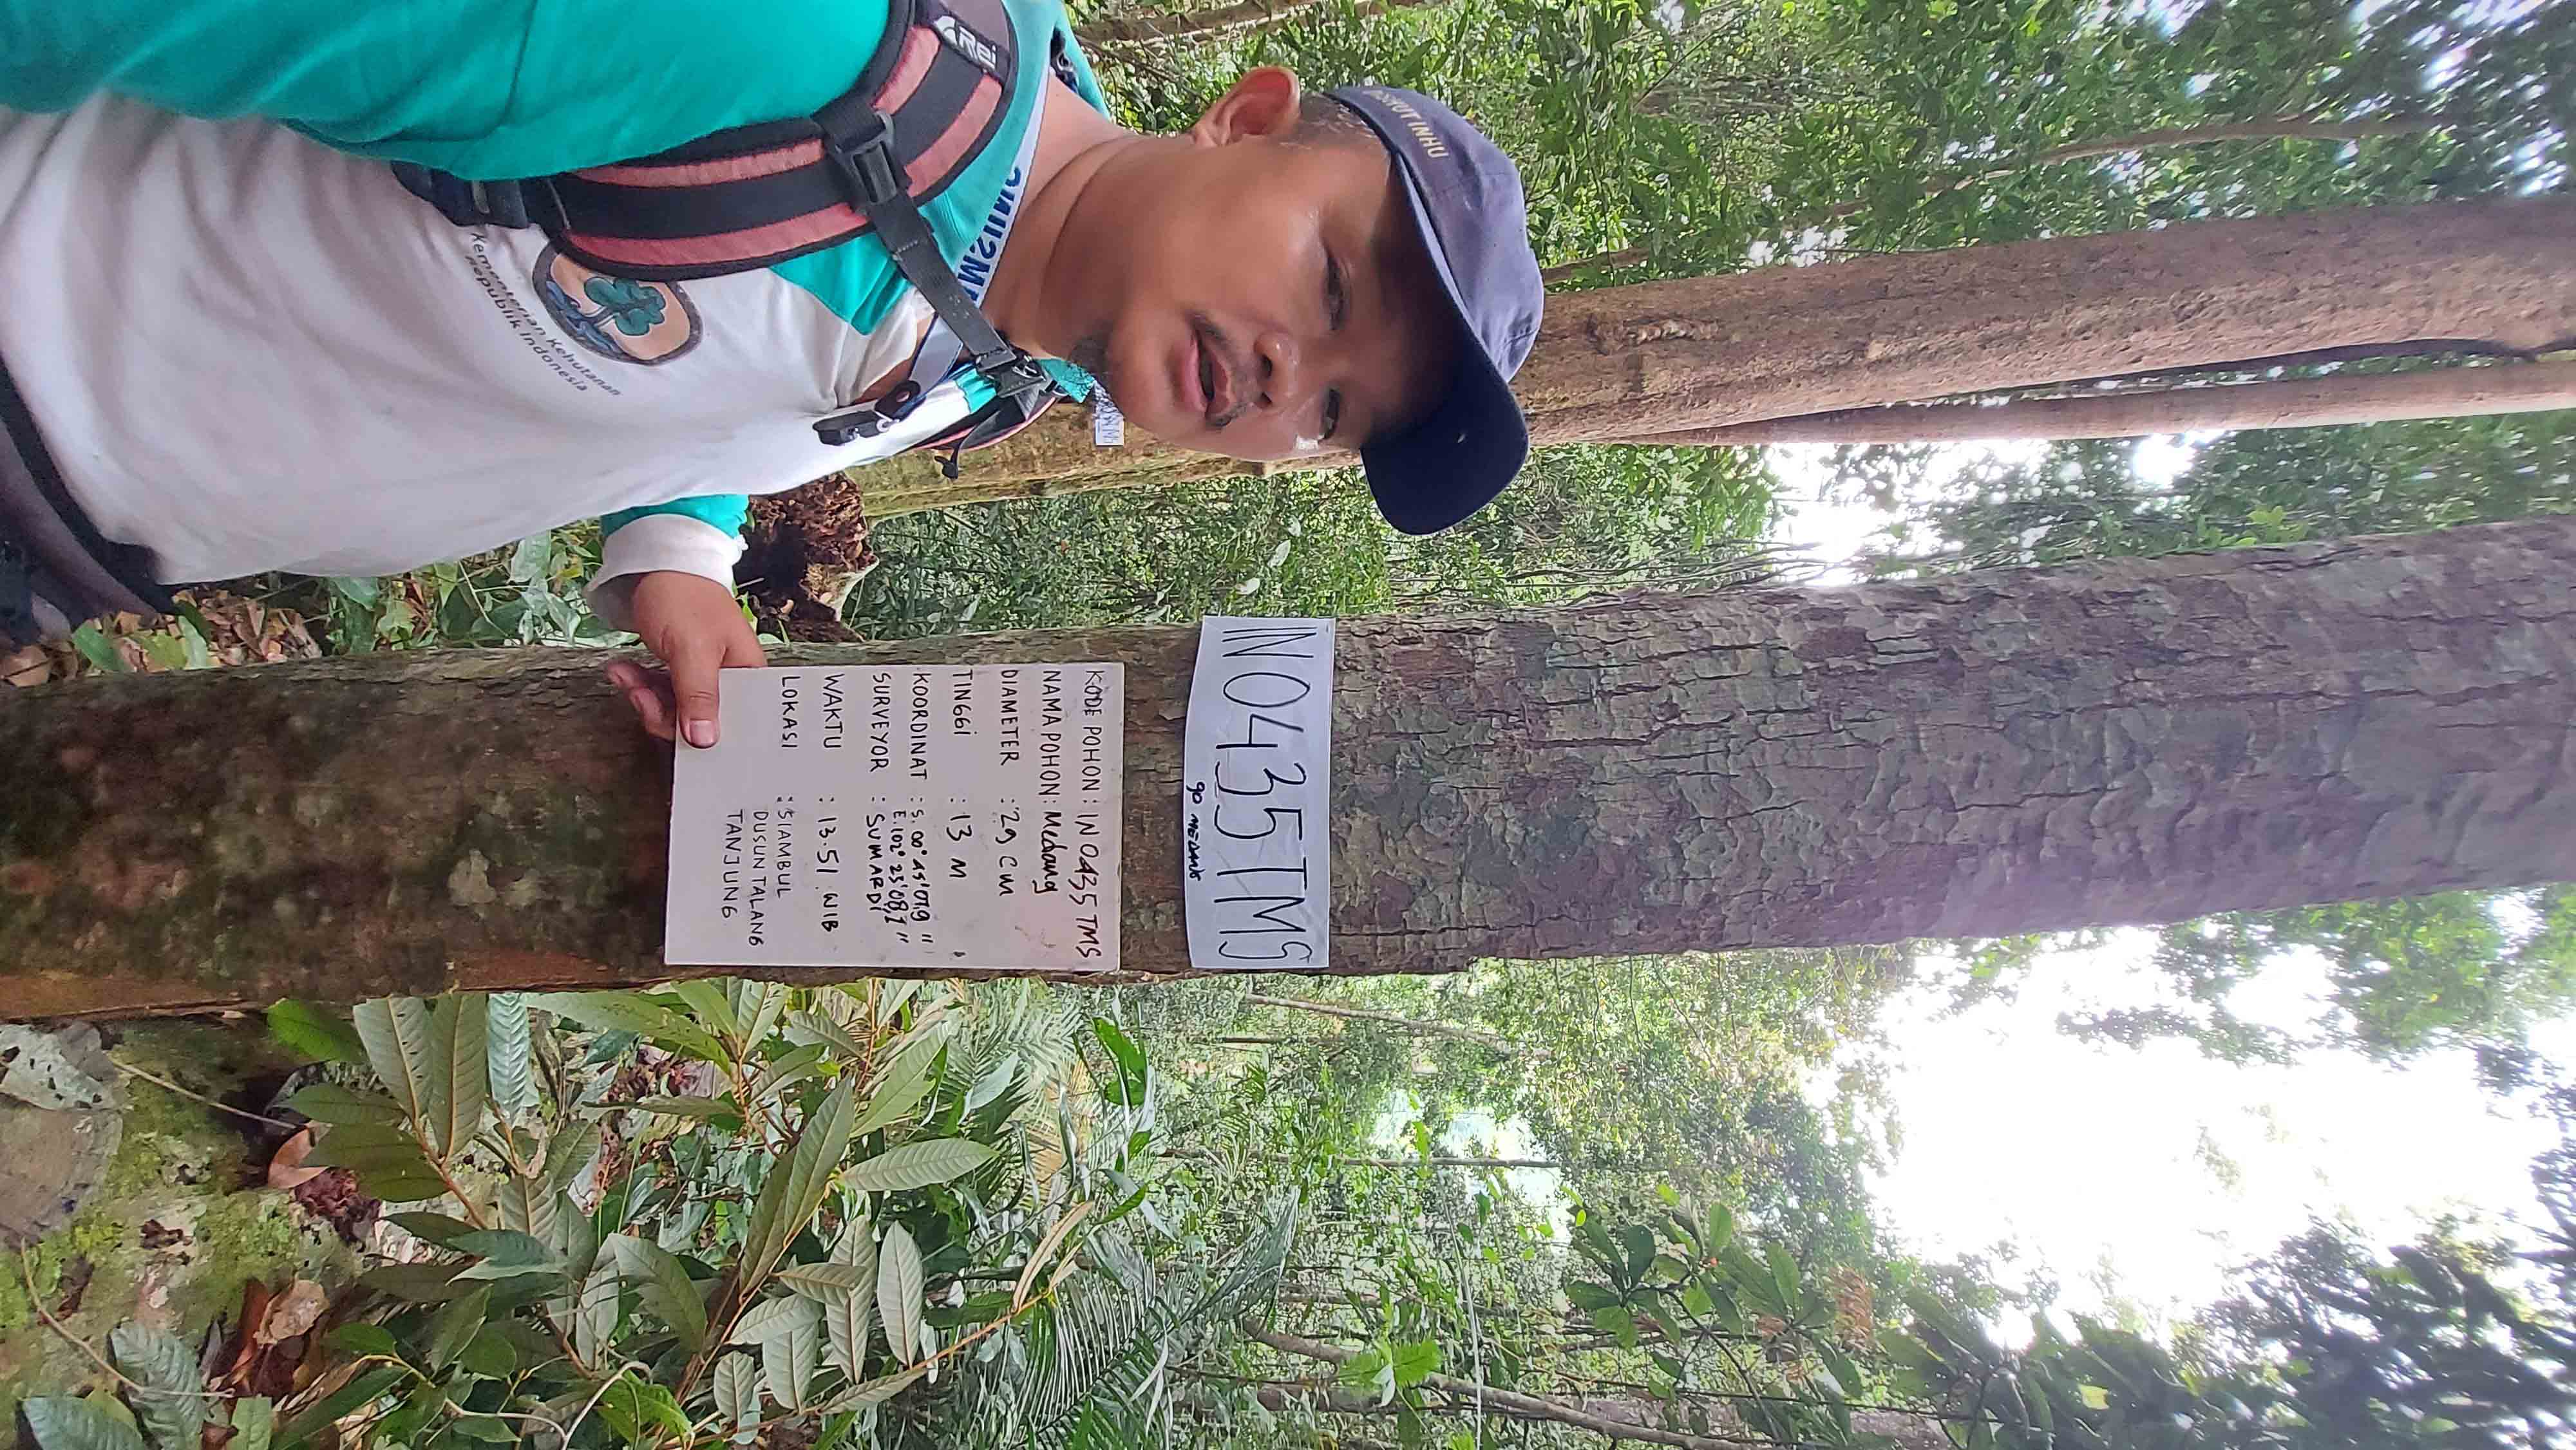 IN 0435 TMS
90 MEDANG
KODE POHON : IN 0435 TMS
NAMA POHON : Medang
DIAMETER : 29 cm
TINGGI : 13 M
KOORDINAT : S. 00° 45'07,9 "
E. 102° 23'08,1 "
SURVEYOR : SUMARDI
WAKTU : 13.51 WIB
LOKASI : SIAMBUL
DUSUN TALANG
TANJUNG
INHU
SAMSUNG
Kementerian Kehutanan
Republik Indonesia